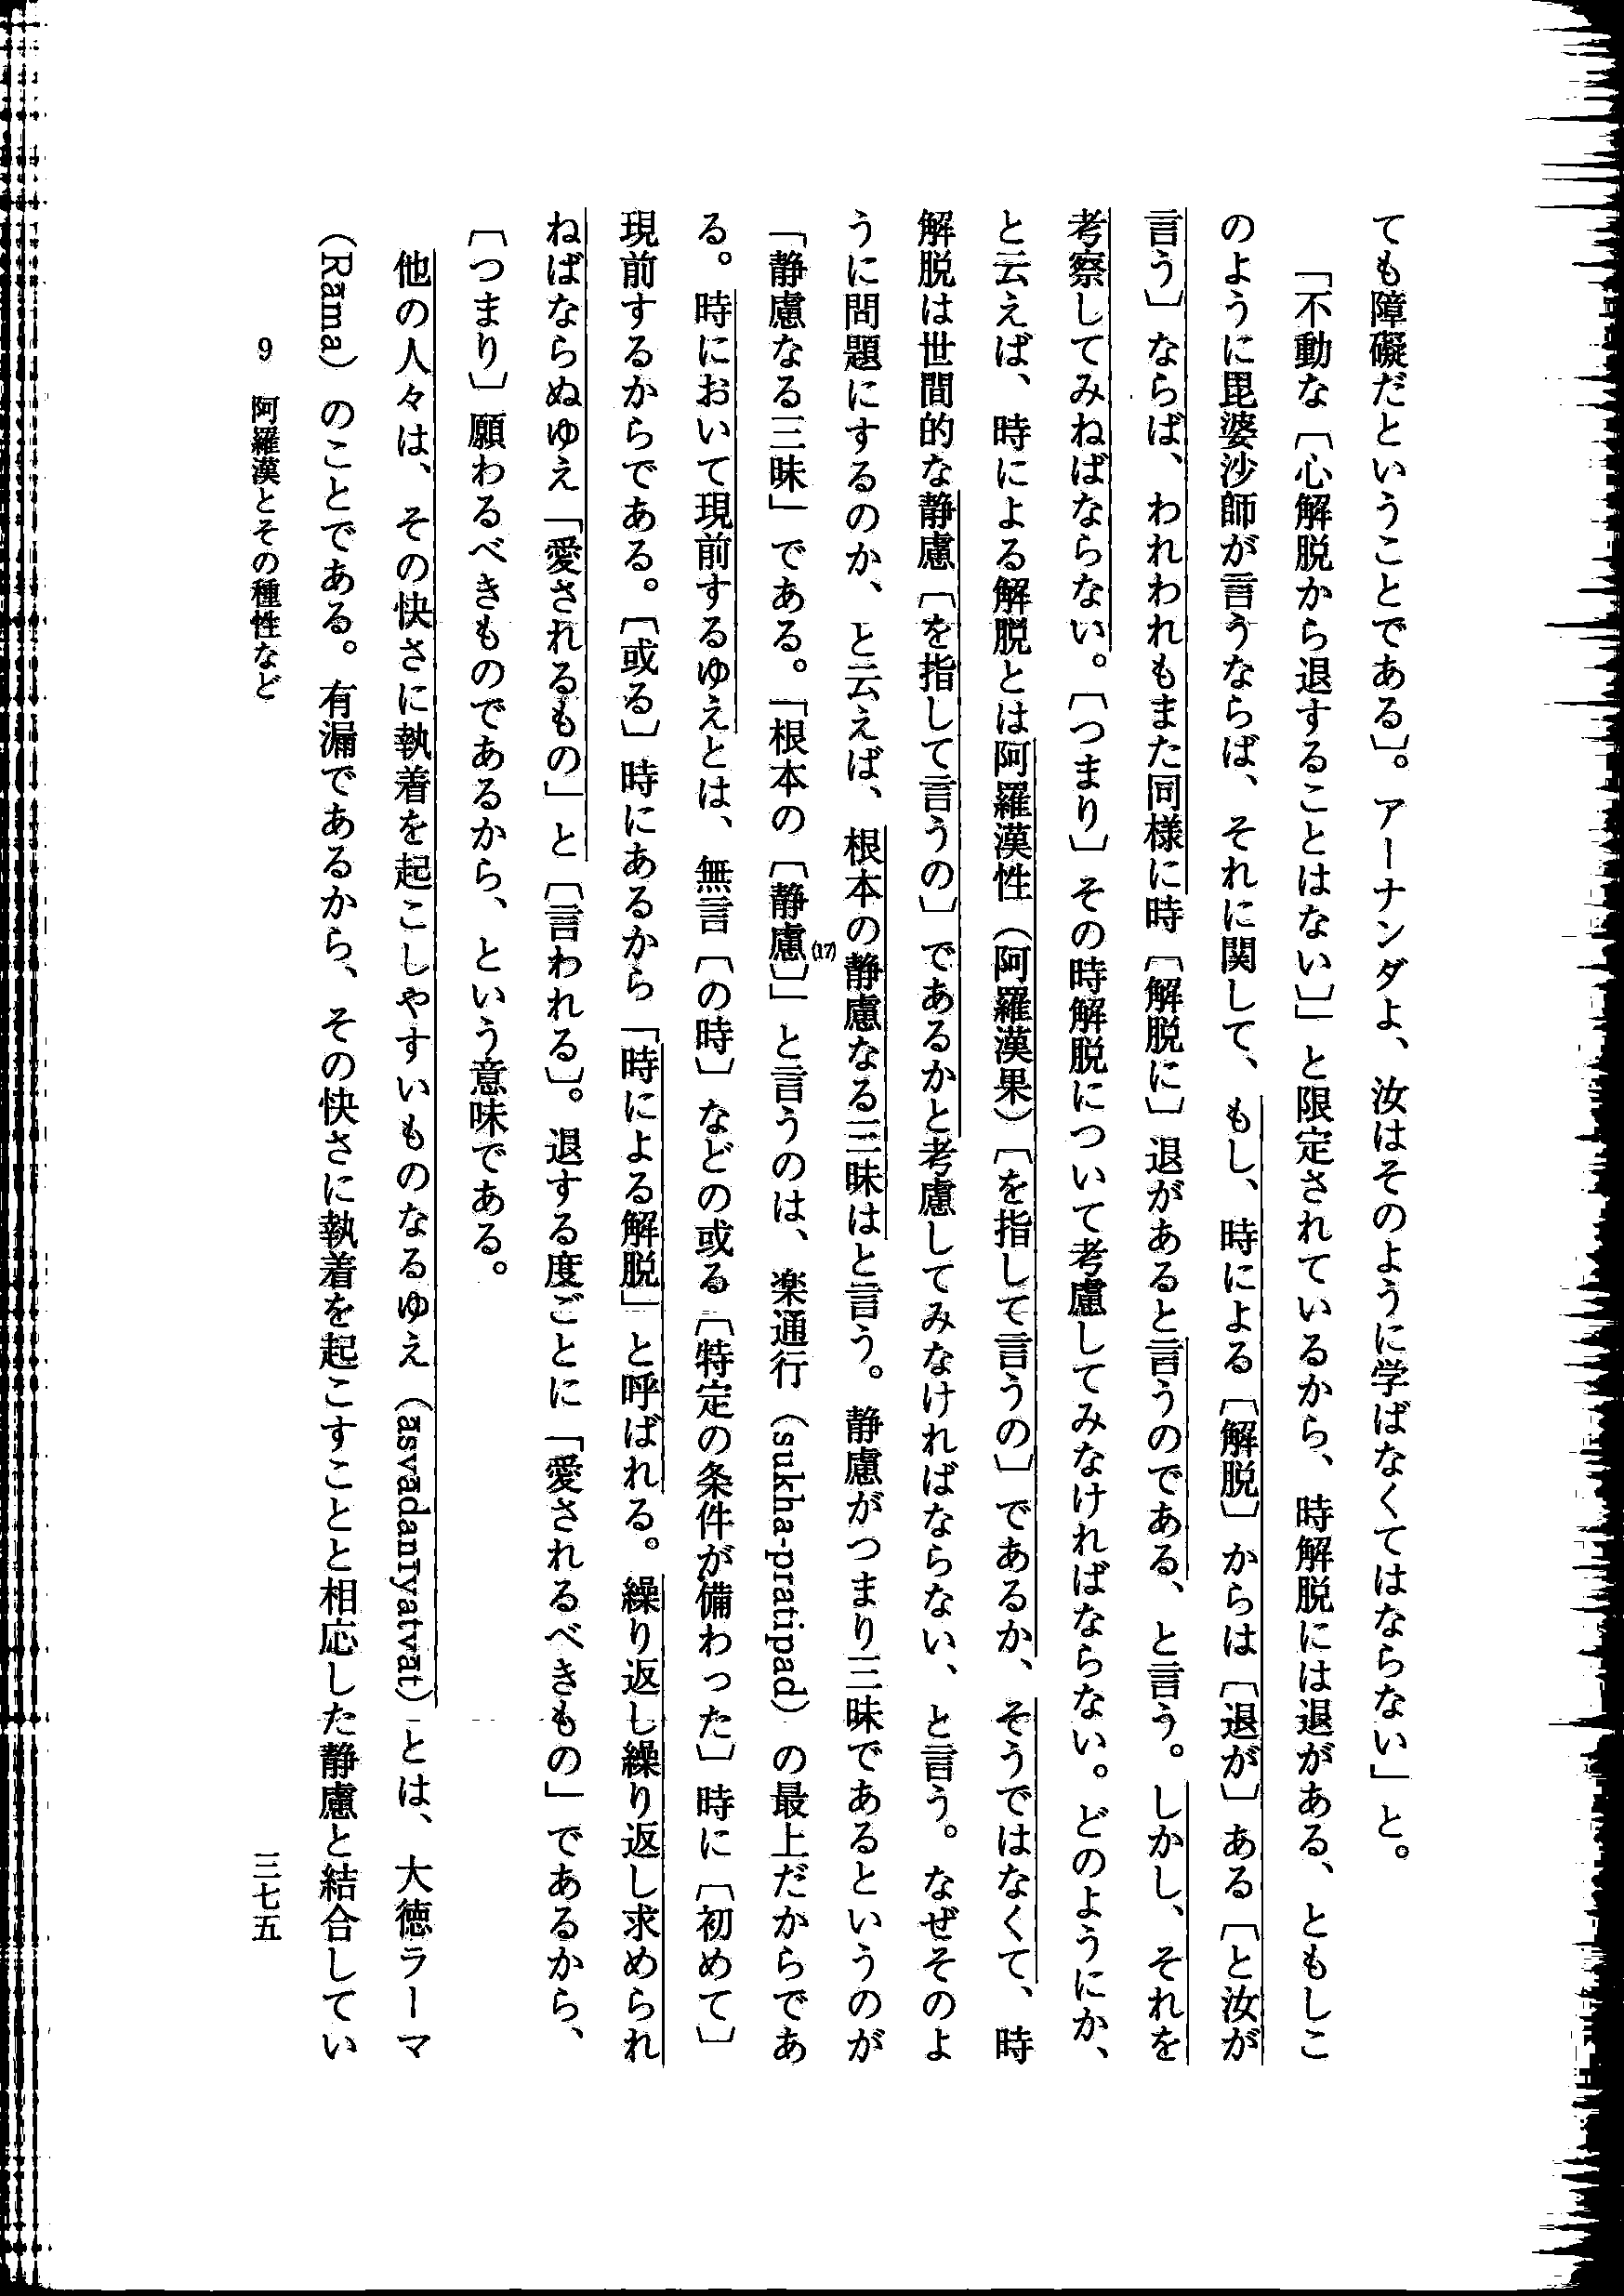 ても障礙だということである〕。アーナンダよ、汝はそのように学ばなくてはならない」と。
「不動な〔心解脱から退することはない〕」と限定されているから、時解脱には退がある、ともしこ
のように毘婆沙師が言うならば、それに関して、もし、時による〔解脱〕からは〔退が〕ある〔と汝が
言う〕ならば、われわれもまた同様に時〔解脱に〕退があると言うのである、と言う。しかし、それを
考察してみねばならない。〔つまり〕その時解脱について考慮してみなければならない。どのようにか、
と云えば、時による解脱とは阿羅漢性（阿羅漢果）〔を指して言うの〕であるか、そうではなくて、時
解脱は世間的な静慮〔を指して言うの〕であるかと考慮してみなければならない、と言う。なぜそのよ
うに問題にするのか、と云えば、根本の静慮なる三昧はと言う。静慮がつまり三昧であるというのが
「静慮なる三昧」である。「根本の〔静慮〕」(17)と言うのは、楽通行（sukha-pratipad）の最上だからであ
る。時において現前するゆえとは、無言〔の時〕などの或る〔特定の条件が備わった〕時に〔初めて〕
現前するからである。〔或る〕時にあるから「時による解脱」と呼ばれる。繰り返し繰り返し求められ
ねばならぬゆえ「愛されるもの」と〔言われる〕。退する度ごとに「愛されるべきもの」であるから、
〔つまり〕願わるべきものであるから、という意味である。
他の人々は、その快さに執着を起こしやすいものなるゆえ（āsvādanīyatvāt）とは、大徳ラーマ
（Rāma）のことである。有漏であるから、その快さに執着を起こすことと相応した静慮と結合してい
9 阿羅漢とその種性など
三七五